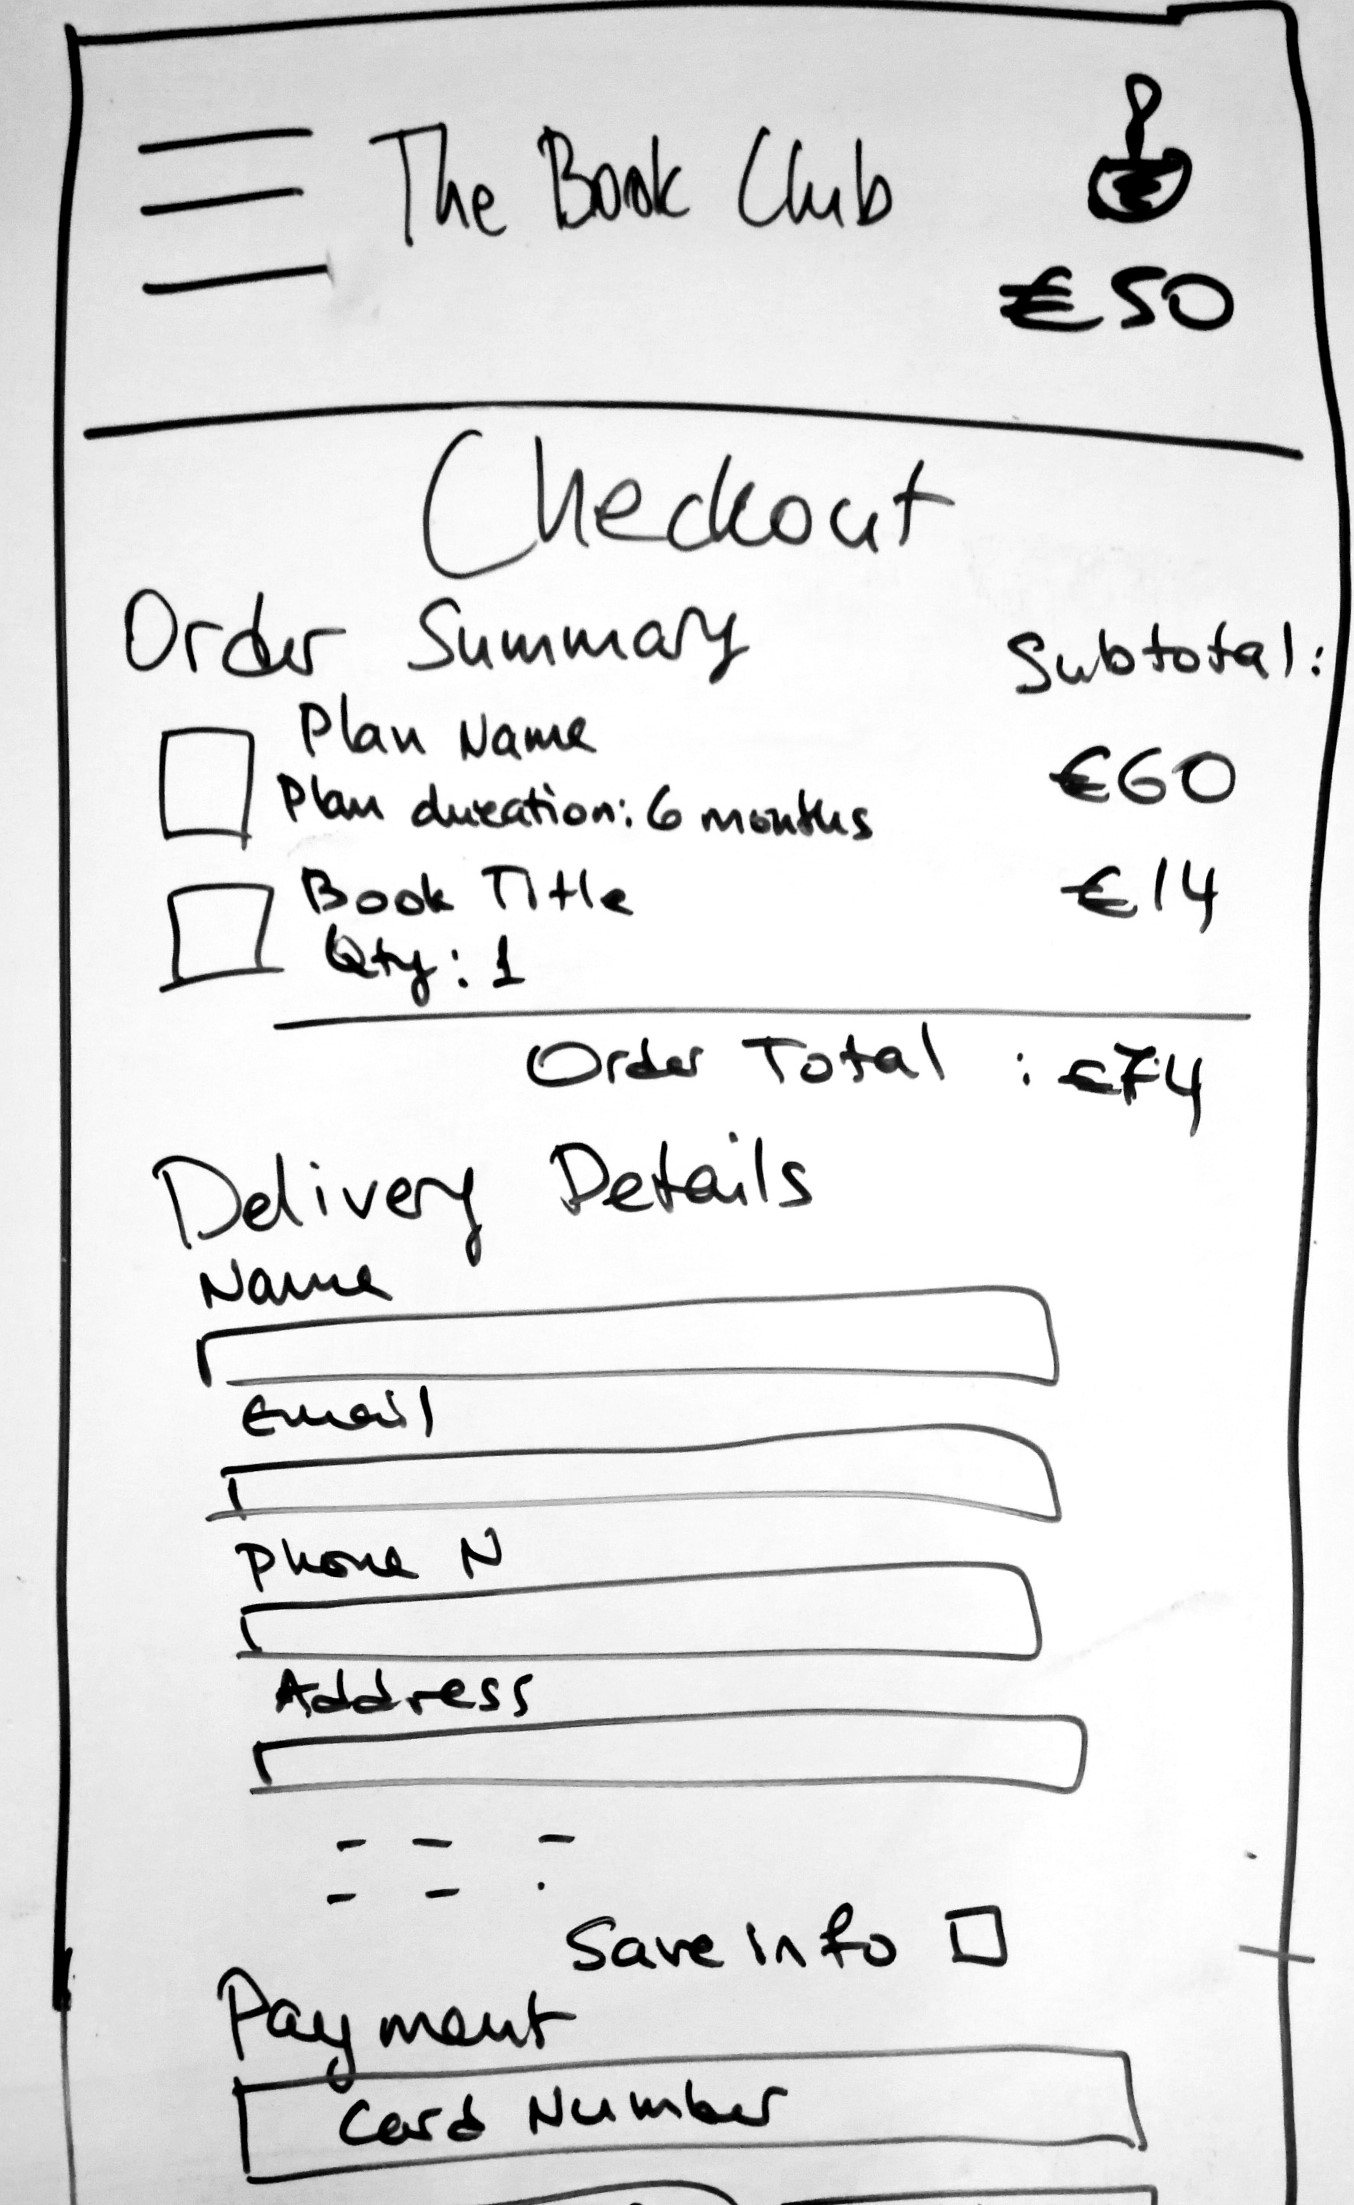 The Book Club
€50
Checkout
Order Summary Subtotal:
Plan Name
Plan duration: 6 months €60
Book Title €14
Qty: 1
Order Total : €74
Delivery Details
Name
Email
Phone N
Address
Save info
Payment
Card Number